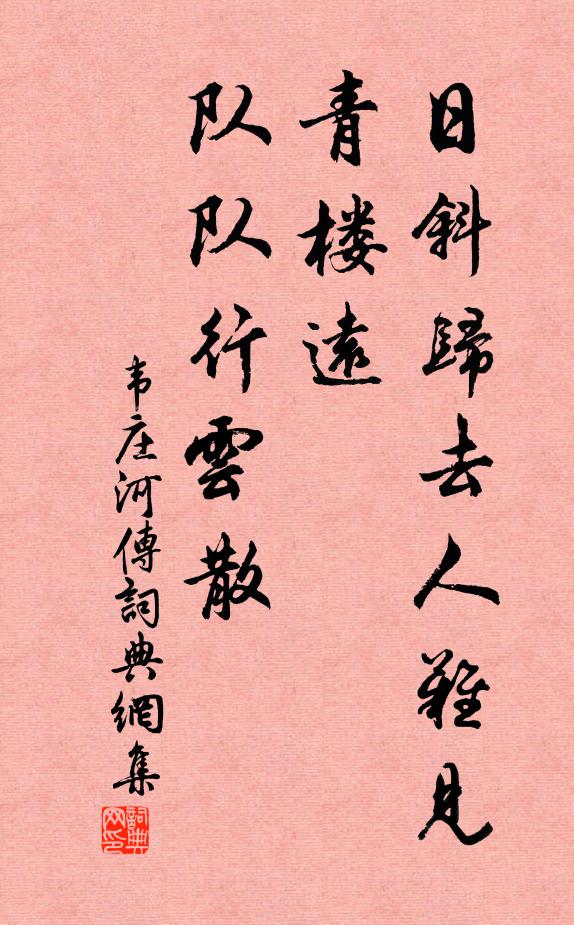 日斜歸去人難見
青楼遠
队队行雲散
韦庄河傳詞典網集
詞典网印